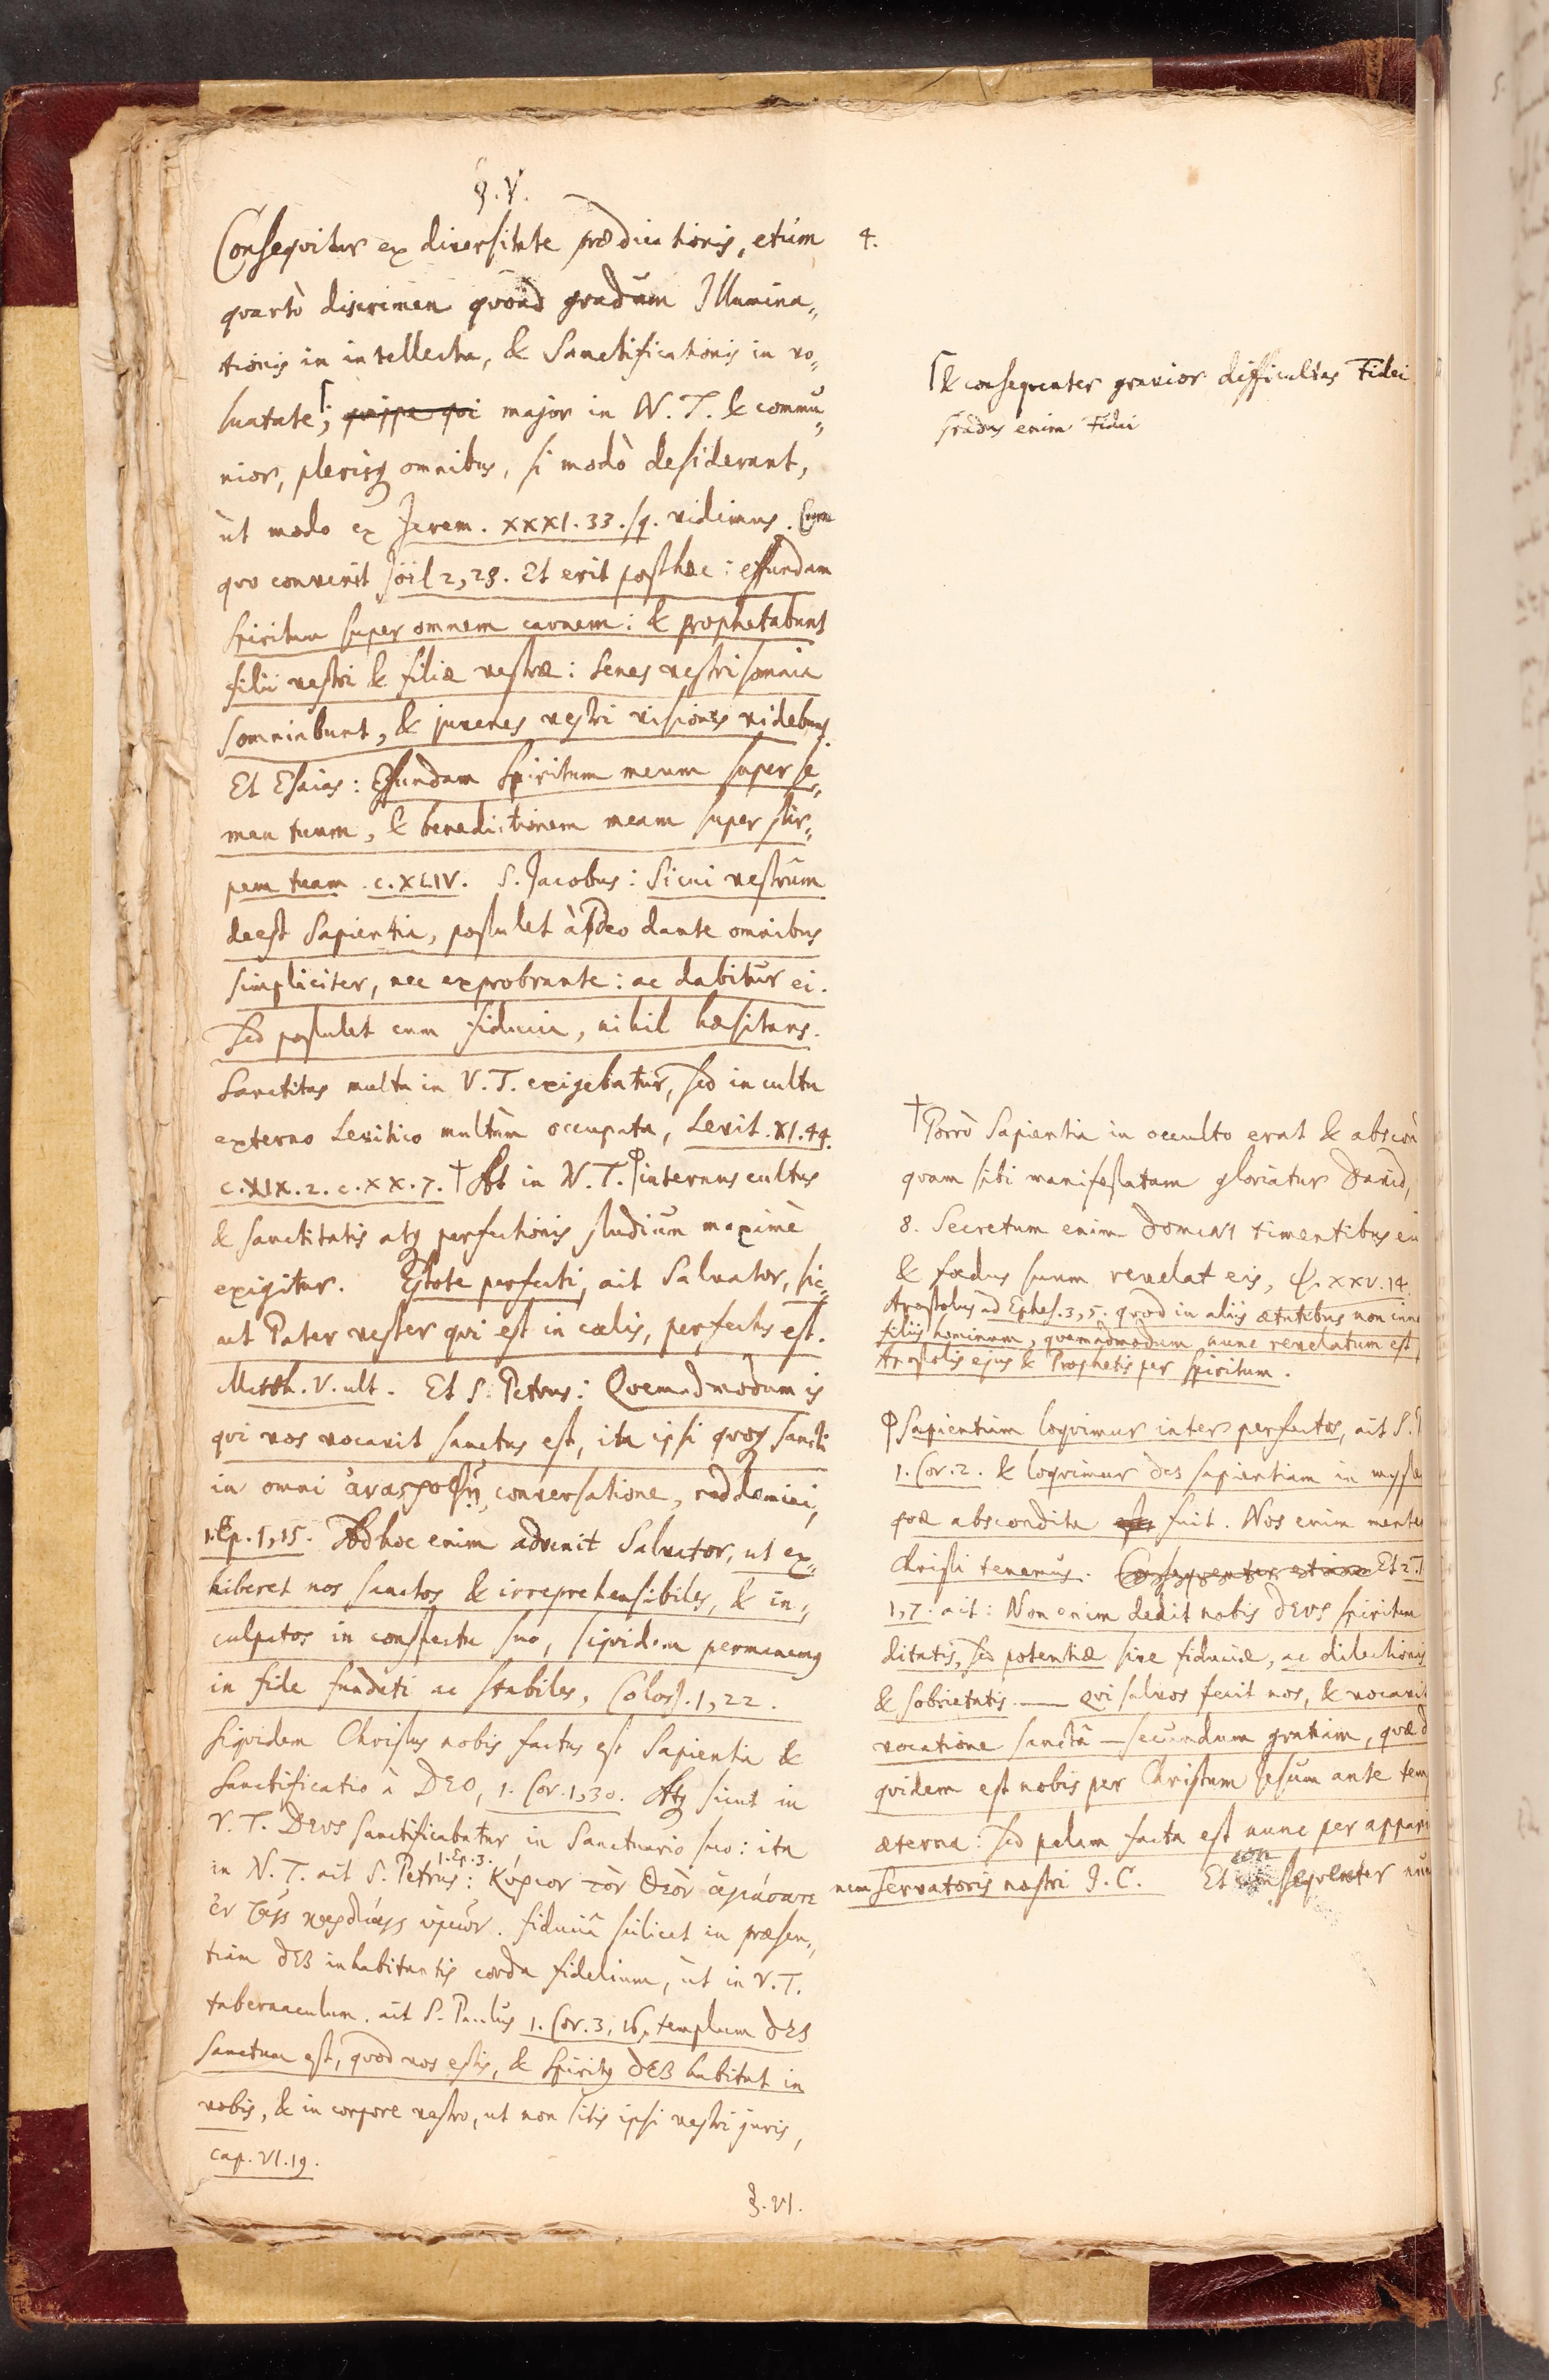 §. V.
Consequitur ex diversitate prædicationis, etiam
4.
quartò discrimen quoad gradum Illumina„
tionis in intellectu, & Sanctificationis in vo„
luntate⌈; quippe qui major in N. T. & commu„
nior, plerisq omnibus, si modò desiderant,
ùt modo ex Jerem. XXXI. 33. sq. vidimus. Cum
quo convenit Joël 2, 28. Et erit posthæc: effundam
Spiritum super omnem carnem: & prophetabunt
filii vestri & filiæ vestræ: Senes vestri somnia
somniabunt, & juvenes vestri visiones videbunt.
Et Esaias: Effundam Spiritum meum super se„
men tuum, & benedictionem meam super stir„
pem tuam. c. XLIV. S. Jacobus: Sicui vestrûm
deest Sapientia, postulet à Deo dante omnibus
simpliciter, nec exprobrante: ac dabitur ei.
Sed postulet cum fiducia, nihil hæsitans.
Sanctitas multa in V. T. exigebatur, sed in cultu
externo Levitico multùm occupata, Levit. XI. 44.
c. XIX. 2. c. XX. 7. † At in N. T. φ internus cultus
& sanctitatis atq perfectionis studium maximè
exigitur. Estote perfecti, ait Salvator, sic„
ut Pater vester qui est in cælis, perfectus est.
Matth. V. ult. Et S. Petrus: Quemadmodum is
qui vos vocavit sanctus est, ita ipsi quoq sancti
in omni ἀναστροφῇ, conversatione, reddamini,
1. Ep. 1, 15. Ad hoc enim advenit Salvator, ut ex„
hiberet nos sanctos & irreprehensibiles, & in„
culpatos in conspectu suo, siquidem permanemus
in fide fundati ac stabiles, Coloss. 1, 22.
Siquidem Christus nobis factus est Sapientia &
Sanctificatio à DEO, 1. Cor. 1, 30. Atq sicut in
V. T. DEUS sanctificabatur in Sanctuario suo: ita
in N. T. ait S. Petrus 1. Ep. 3.: Κύριον τὸν Θεὸν ἁγιάσατε
ἐν ταῖς καρδίαις ὑμῶν. fiduciâ scilicet in præsen„
tiam DEI inhabitantis corda fidelium, ùt in V. T.
tabernaculum. ait S. Paulus 1. Cor. 3, 16, templum DEI
sanctum est, quod vos estis, & Spiritus DEI habitat in
vobis, & in corpore vestro, ut non sitis ipsi vestri juris,
cap. VI. 19.
§. VI.
⌈ & consequenter gravior difficultas Fidei
gradus enim Fidei
† Porrò Sapientia in occulto erat & abscon
quam sibi manifestatam gloriatur David,
8. Secretum enim DOMINI timentibus eu
& fœdus suum revelat eis, ψ. XXV. 14.
Apostolus ad Ephes. 3, 5. quod in aliis ætatibus non inno
filiis hominum, quemadmodum nunc revelatum est
Apostolis ejus & Prophetis per Spiritum.
φ Sapientiam loquimur inter perfectos, ait S. P
1. Cor. 2. & loquimur DEI sapientiam in myste
quæ abscondita est fuit. Nos enim mente
Christi tenemus. Consequenter etiam Et 2. T
1, 7. ait: Non enim dedit nobis DEUS spiritum
ditatis, sed potentiæ sive fiduciæ, ac dilectionis
& sobrietatis. — Qui salvos fecit nos, & vocavit
vocatione sanctâ — secundum gratiam, quæ d
quidem est nobis per Christum Jesum ante tem
æterna: sed palam facta est nunc per appari
nem Servatoris nostri J. C. Et consequenter nun